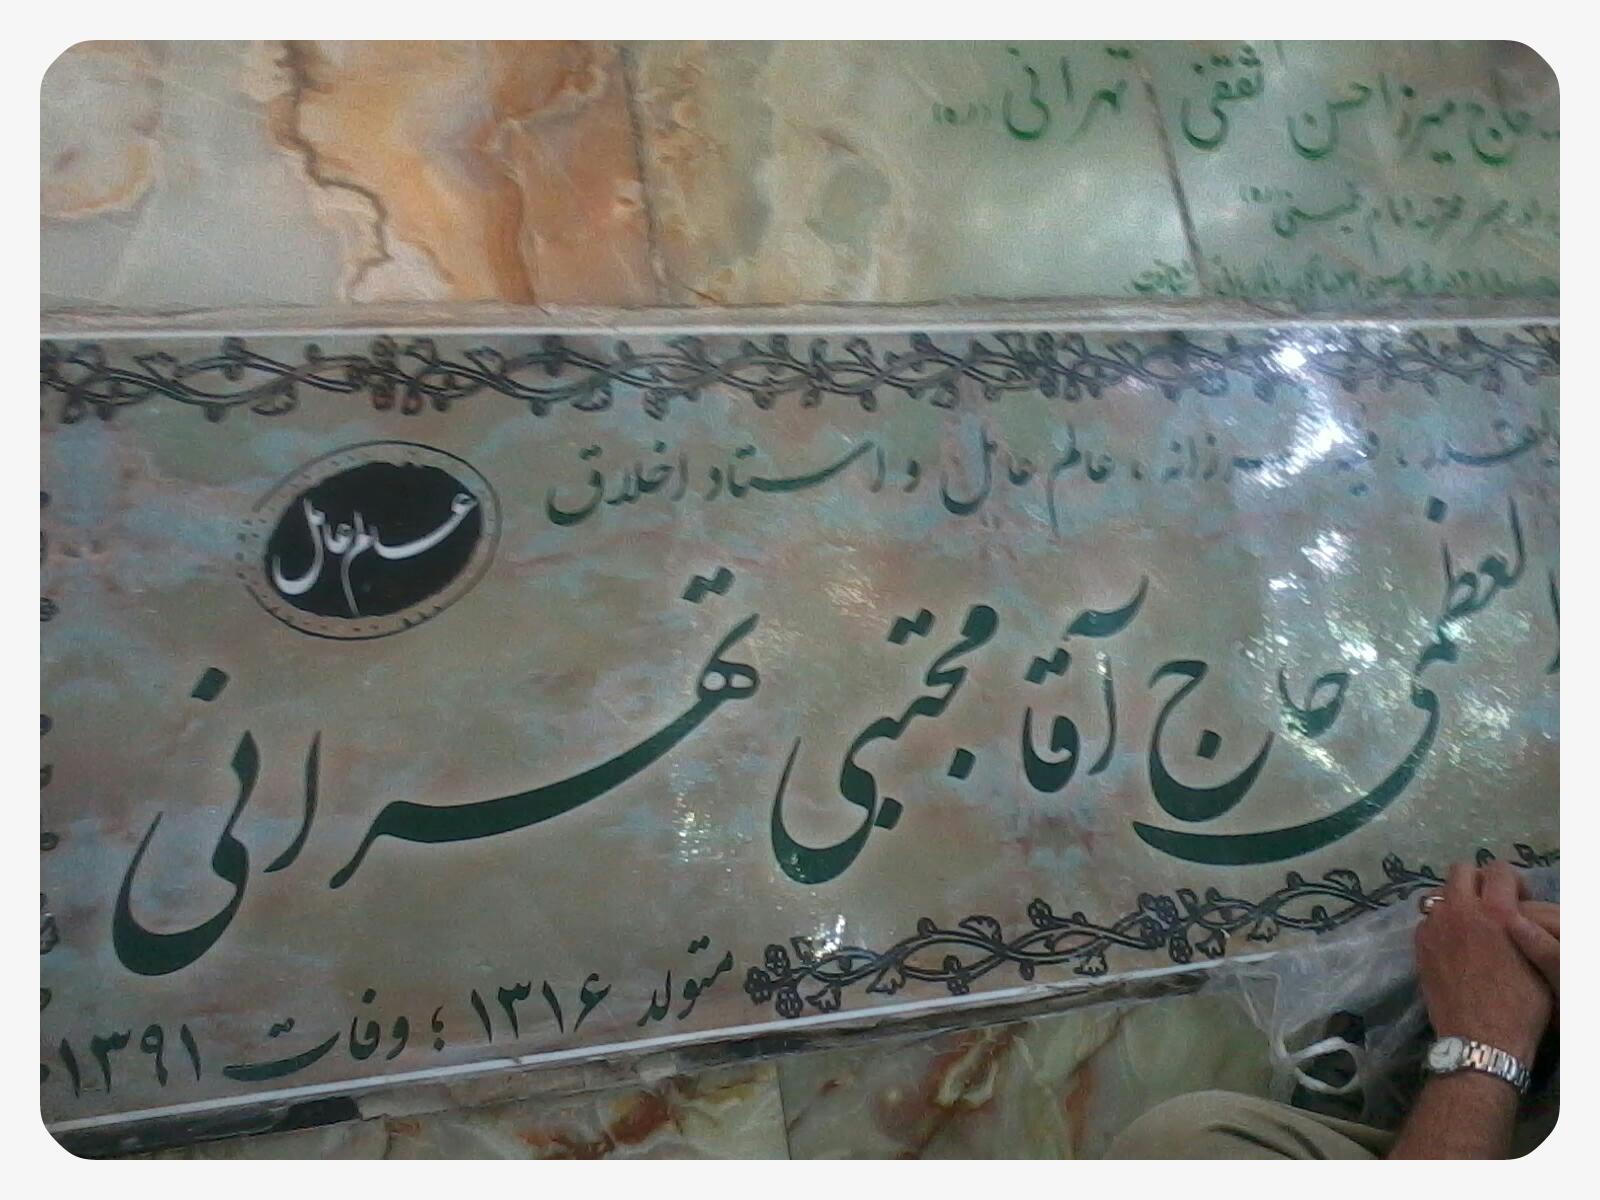 حاج میرزا حسن ثقفی تهرانی (ره)
امام خمینی (ره)
عالم عامل و استاد اخلاق
عالم عامل
العظمی حاج آقا مجتبی تهرانی
متولد ۱۳۱۶ ؛ وفات ۱۳۹۱